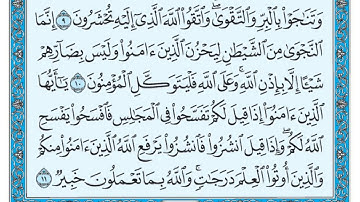 وَتَنَٰجَوۡاْ بِٱلۡبِرِّ وَٱلتَّقۡوَىٰۖ وَٱتَّقُواْ ٱللَّهَ ٱلَّذِيٓ إِلَيۡهِ تُحۡشَرُونَ ٩ إِنَّمَا
ٱلنَّجۡوَىٰ مِنَ ٱلشَّيۡطَٰنِ لِيَحۡزُنَ ٱلَّذِينَ ءَامَنُواْ وَلَيۡسَ بِضَآرِّهِمۡ
شَيۡـًٔا إِلَّا بِإِذۡنِ ٱللَّهِۚ وَعَلَى ٱللَّهِ فَلۡيَتَوَكَّلِ ٱلۡمُؤۡمِنُونَ ١٠ يَٰٓأَيُّهَا
ٱلَّذِينَ ءَامَنُوٓاْ إِذَا قِيلَ لَكُمۡ تَفَسَّحُواْ فِي ٱلۡمَجَٰلِسِ فَٱفۡسَحُواْ يَفۡسَحِ
ٱللَّهُ لَكُمۡۖ وَإِذَا قِيلَ ٱنشُزُواْ فَٱنشُزُواْ يَرۡفَعِ ٱللَّهُ ٱلَّذِينَ ءَامَنُواْ مِنكُمۡ
وَٱلَّذِينَ أُوتُواْ ٱلۡعِلۡمَ دَرَجَٰتٖۚ وَٱللَّهُ بِمَا تَعۡمَلُونَ خَبِيرٞ ١١